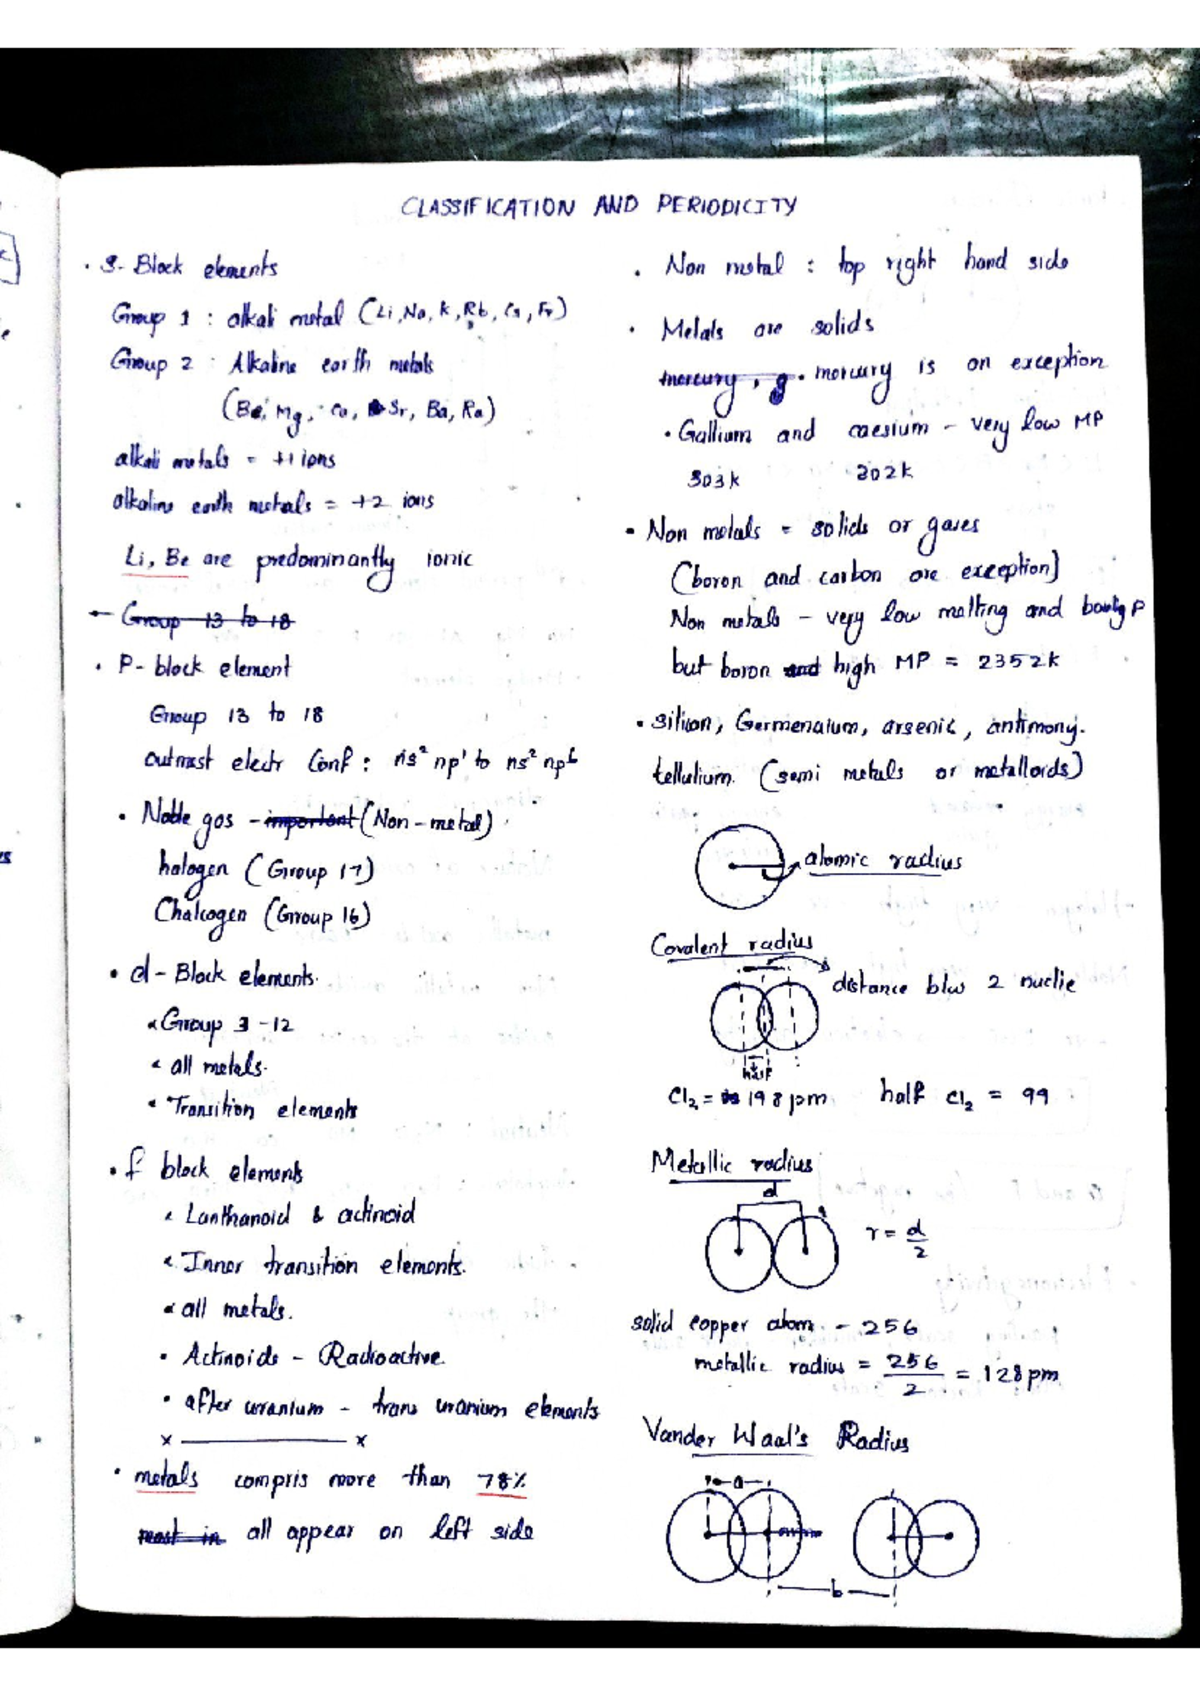 CLASSIFICATION AND PERIODICITY
• S-Block elements
Group 1 : alkali metal (Li, Na, K, Rb, Cs, Fr)
Group 2 : Alkaline earth metals
(Be, Mg, Ca, Sr, Ba, Ra)
alkali metals = +1 ions
alkaline earth metals = +2 ions
Li, Be are predominantly ionic
← Group 13 to 18
• P-block element
Group 13 to 18
outmost electr Conf : ns² np¹ to ns² np⁶
• Noble gas - important (Non-metal)
halogen (Group 17)
Chalcogen (Group 16)
• d-Block elements.
Group 3-12
all metals.
Transition elements
• f block elements
Lanthanoid & actinoid
Inner transition elements.
all metals.
• Actinoids - Radioactive.
• after uranium - trans uranium elements
x ——— x
• metals compris more than 78%
most in all appear on left side
• Non metal : top right hand side
• Metals are solids
mercury, g • mercury is an exception
• Gallium and caesium - very low MP
303k 302k
• Non metals = solids or gases
(boron and carbon are exception)
Non metals - very low melting and boilig P
but boron and high MP = 2352k
• silicon, Germenaium, arsenic, antimony.
tellulium. (semi metals or metalloids)
atomic radius
Covalent radius
distance b/w 2 nuclie
half
Cl₂ = 198 pm half Cl₂ = 99
Metallic radius
d
r = d/2
solid copper atom - 256
metallic radius = 256/2 = 128 pm
Vander Waal's Radius
a
b